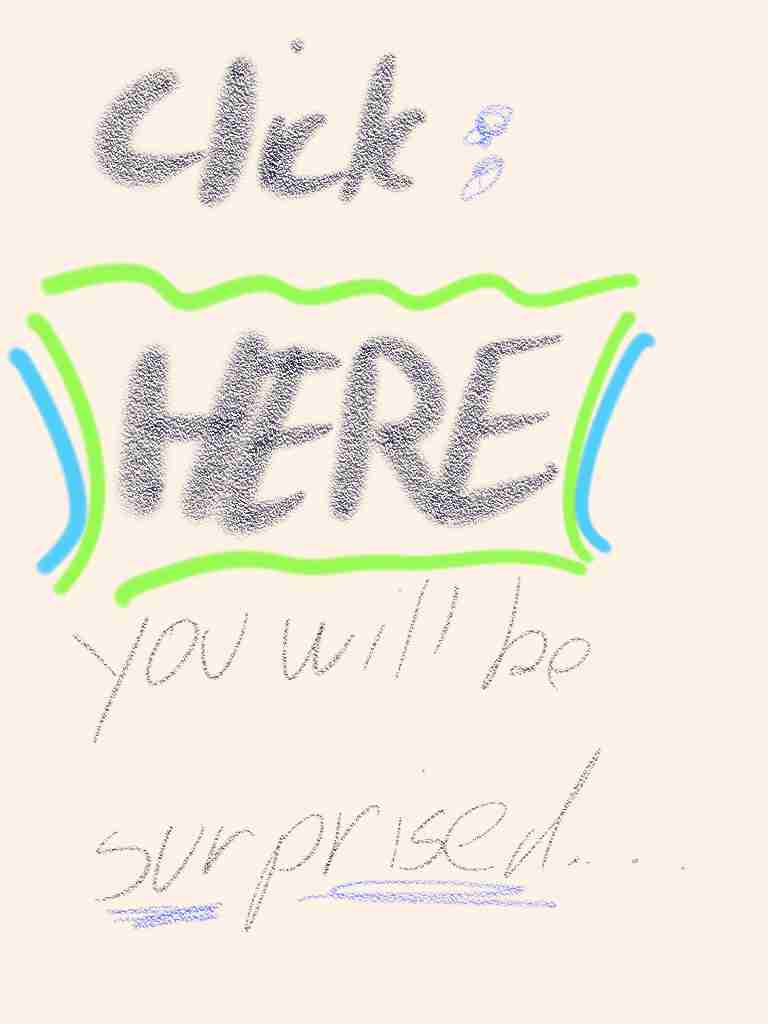 Click :
HERE
you will be
surprised....